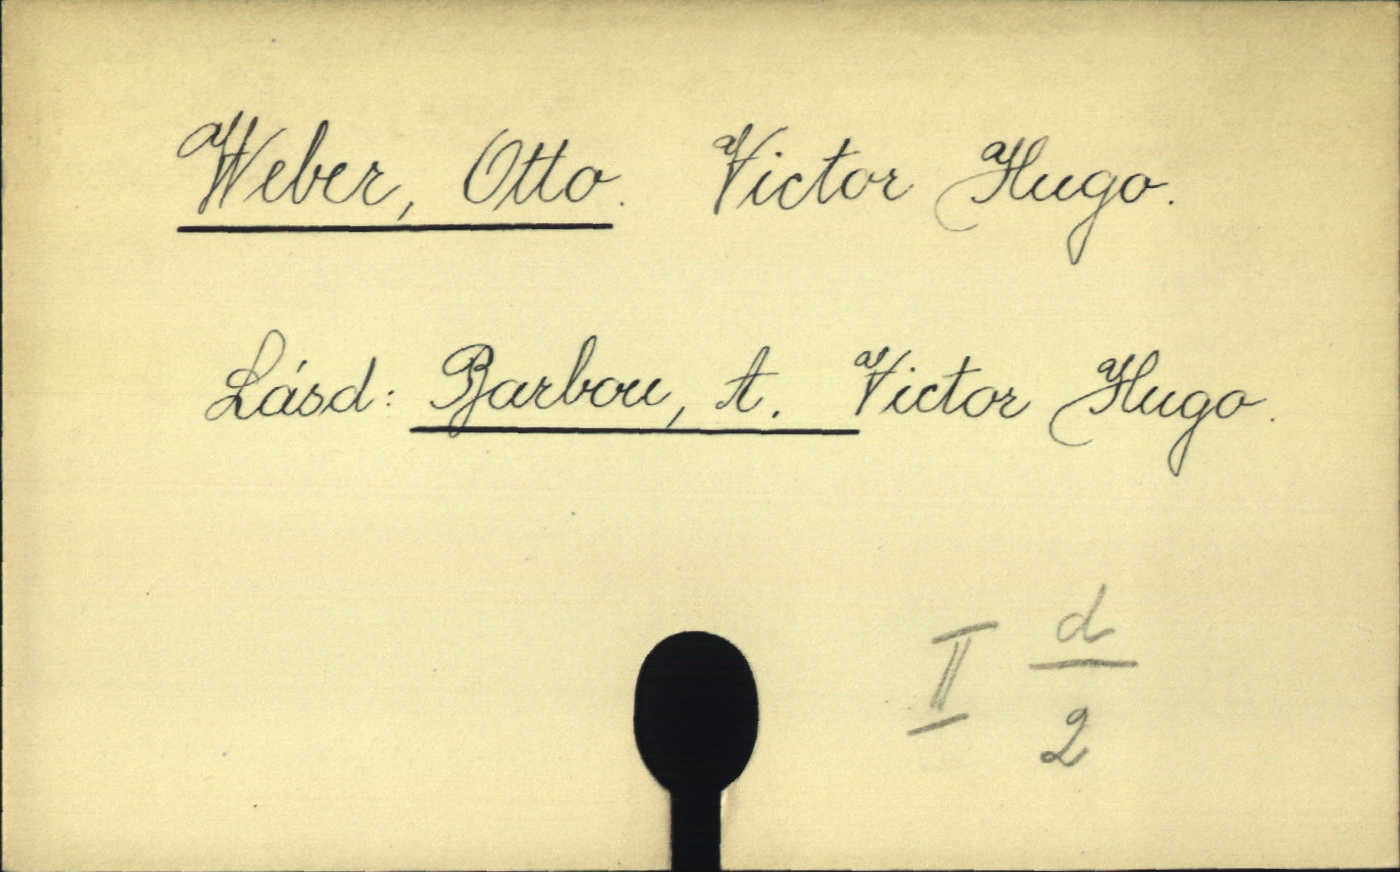 Weber, Otto. Victor Hugo.
Lásd: Barbou, A. Victor Hugo.
II d/2